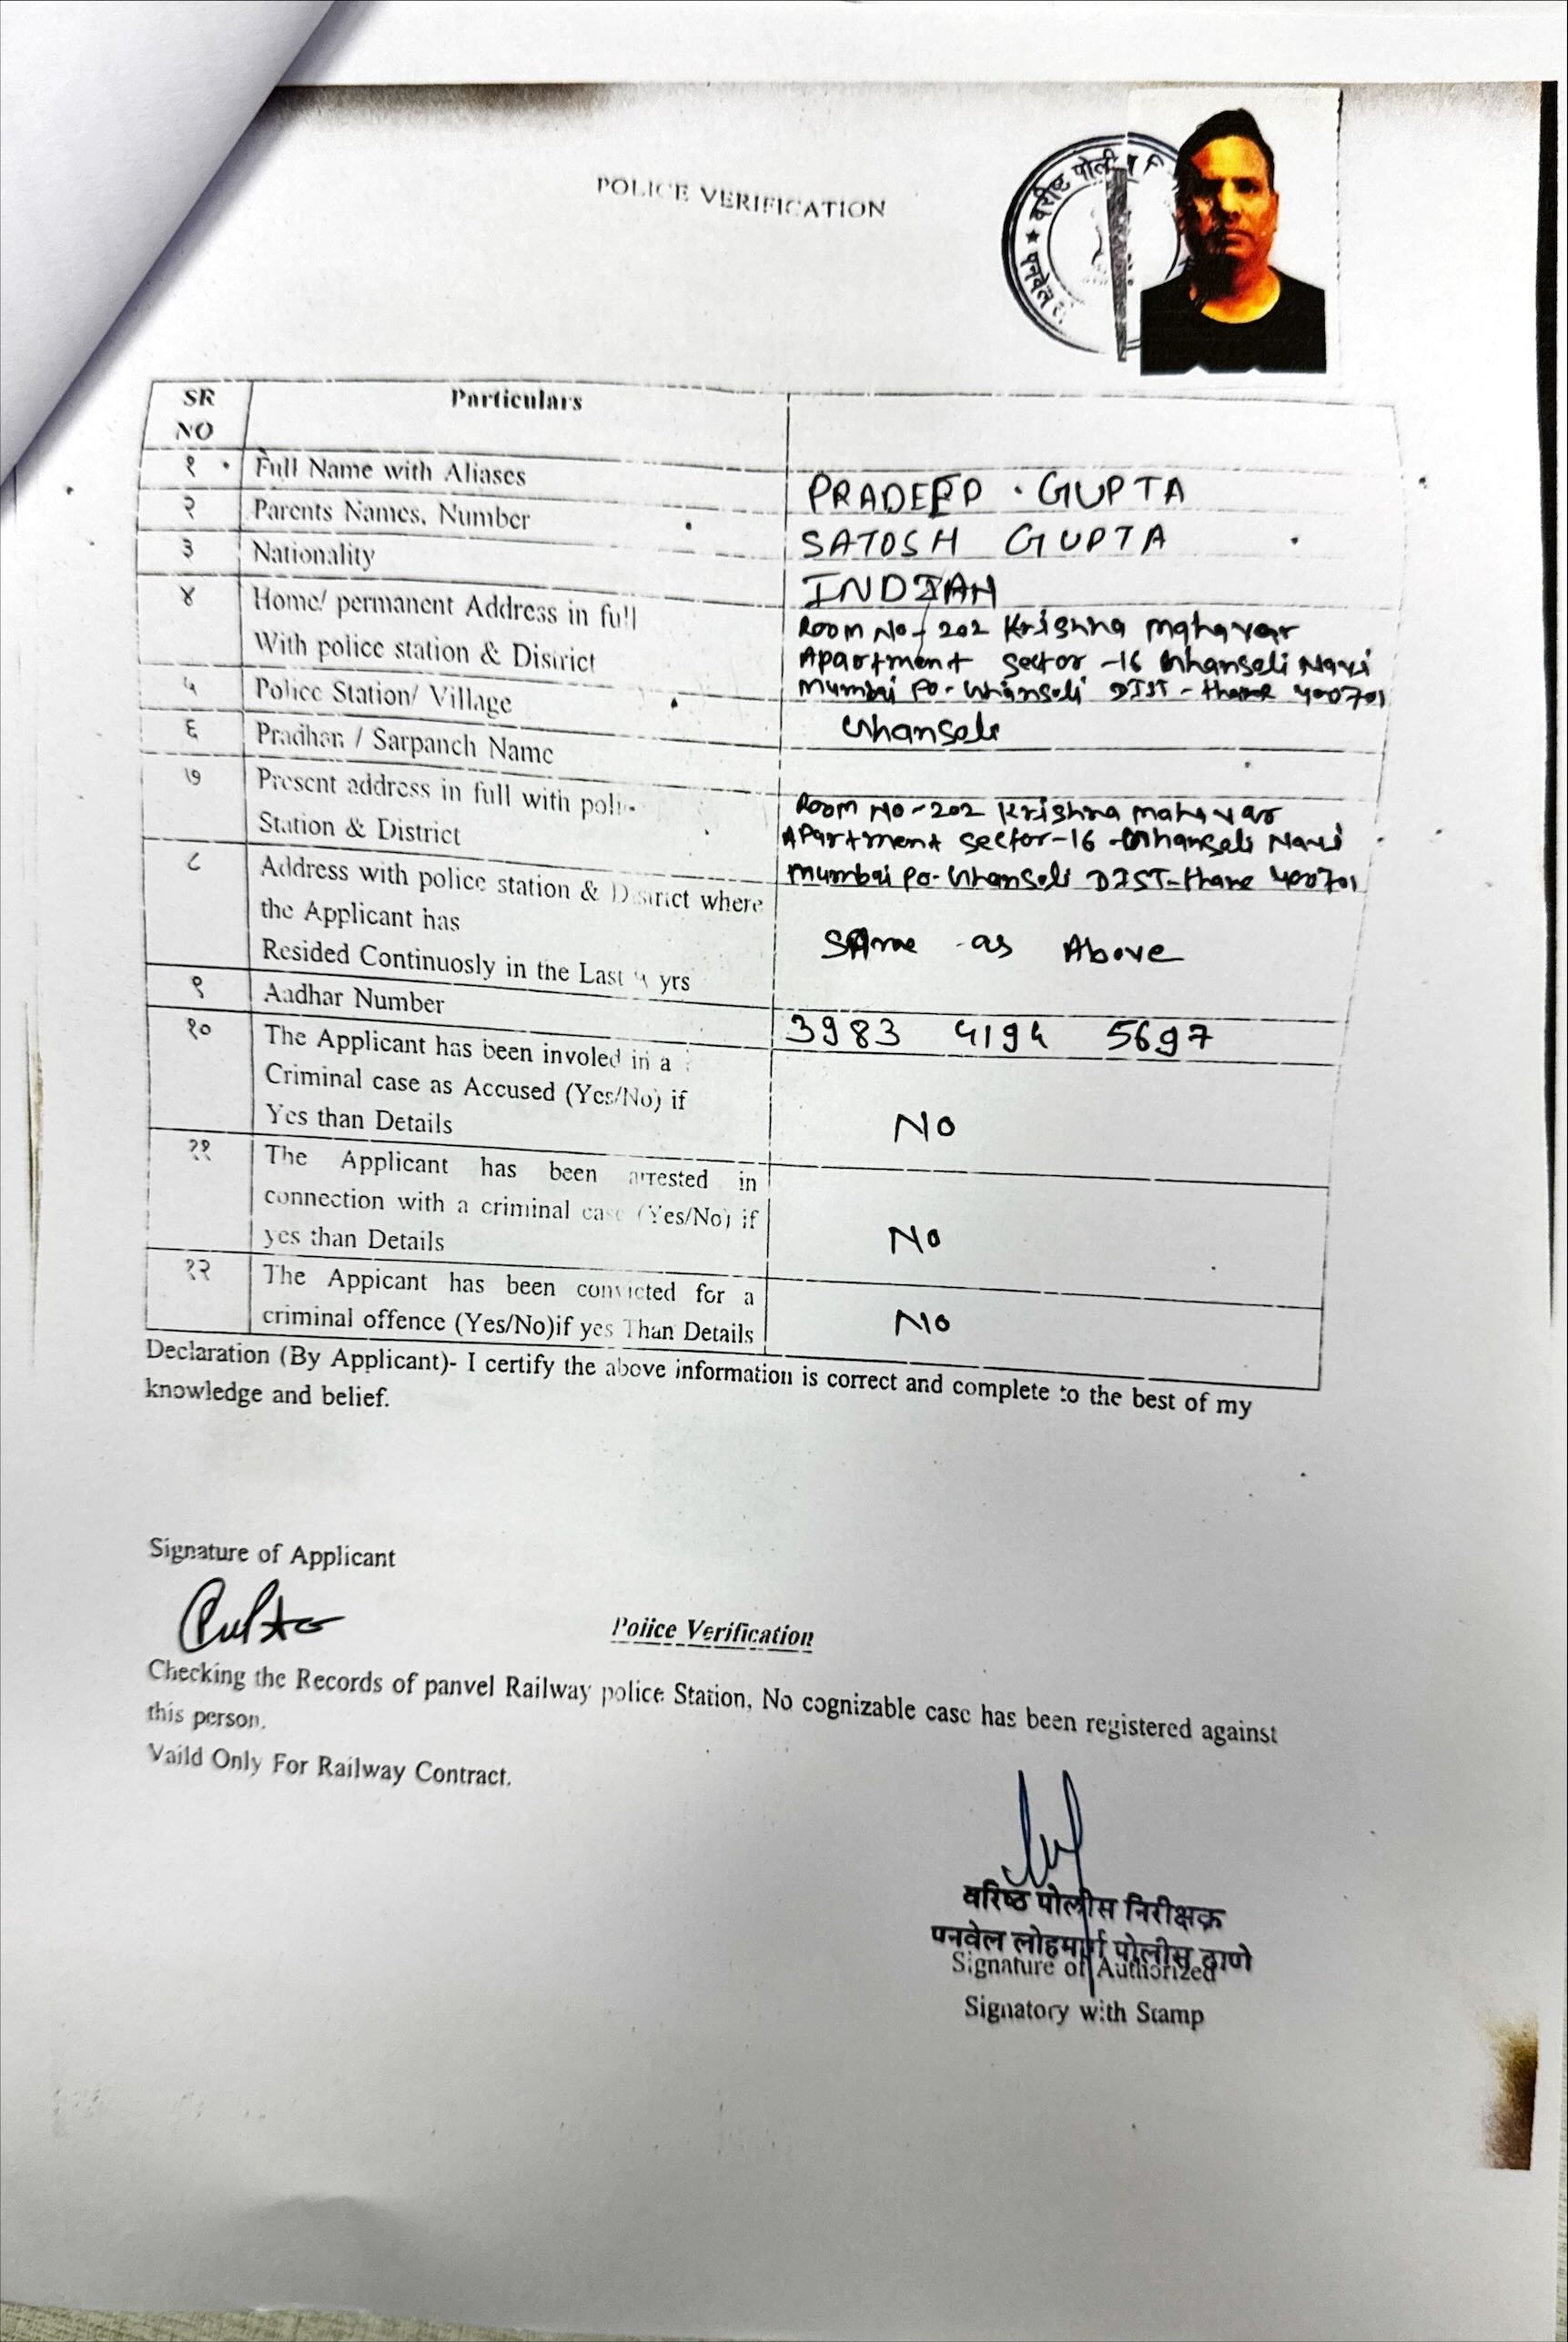 POLICE VERIFICATION
वरीष्ठ पोली
पनवेल
SR NO Particulars
१ Full Name with Aliases PRADEEP . GUPTA
२ Parents Names, Number SATOSH GUPTA
३ Nationality INDIAN
४ Home/ permanent Address in full
With police station & District
Room No - 202 Krishna mahavar
Apartment sector -16 Ghansoli Navi
Mumbai Po - Ghansoli DIST - thane 400701
५ Police Station/ Village Ghansoli
६ Pradhan / Sarpanch Name
७ Present address in full with
Station & District
Room No - 202 Krishna mahavar
Apartment sector-16 Ghansoli Navi
Mumbai Po- Ghansoli DIST-thane 400701
८ Address with police station & District where
the Applicant has
Resided Continuosly in the Last ५ yrs
Same as Above
९ Aadhar Number 3983 4194 5697
१० The Applicant has been involed in a
Criminal case as Accused (Yes/No) if
Yes than Details
No
११ The Applicant has been arrested in
connection with a criminal case (Yes/No) if
yes than Details
No
१२ The Appicant has been convicted for a
criminal offence (Yes/No)if yes Than Details
No
Declaration (By Applicant)- I certify the above information is correct and complete to the best of my
knowledge and belief.
Signature of Applicant
Police Verification
Checking the Records of panvel Railway police Station, No cognizable case has been registered against
this person.
Vaild Only For Railway Contract.
वरिष्ठ पोलीस निरीक्षक
पनवेल लोहमार्ग पोलीस ठाणे
Signature of Authorized
Signatory with Stamp